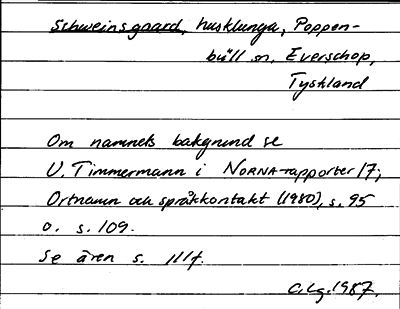 Schweinsgaard, husklunga, Poppen-
büll sn, Everschop,
Tyskland
Om namnets bakgrund se
U. Timmermann i NORNA-rapporter 17;
Ortnamn och språkkontakt (1980), s. 95
o. s. 109.
Se även s. 111f.
C. Lg. 1987.